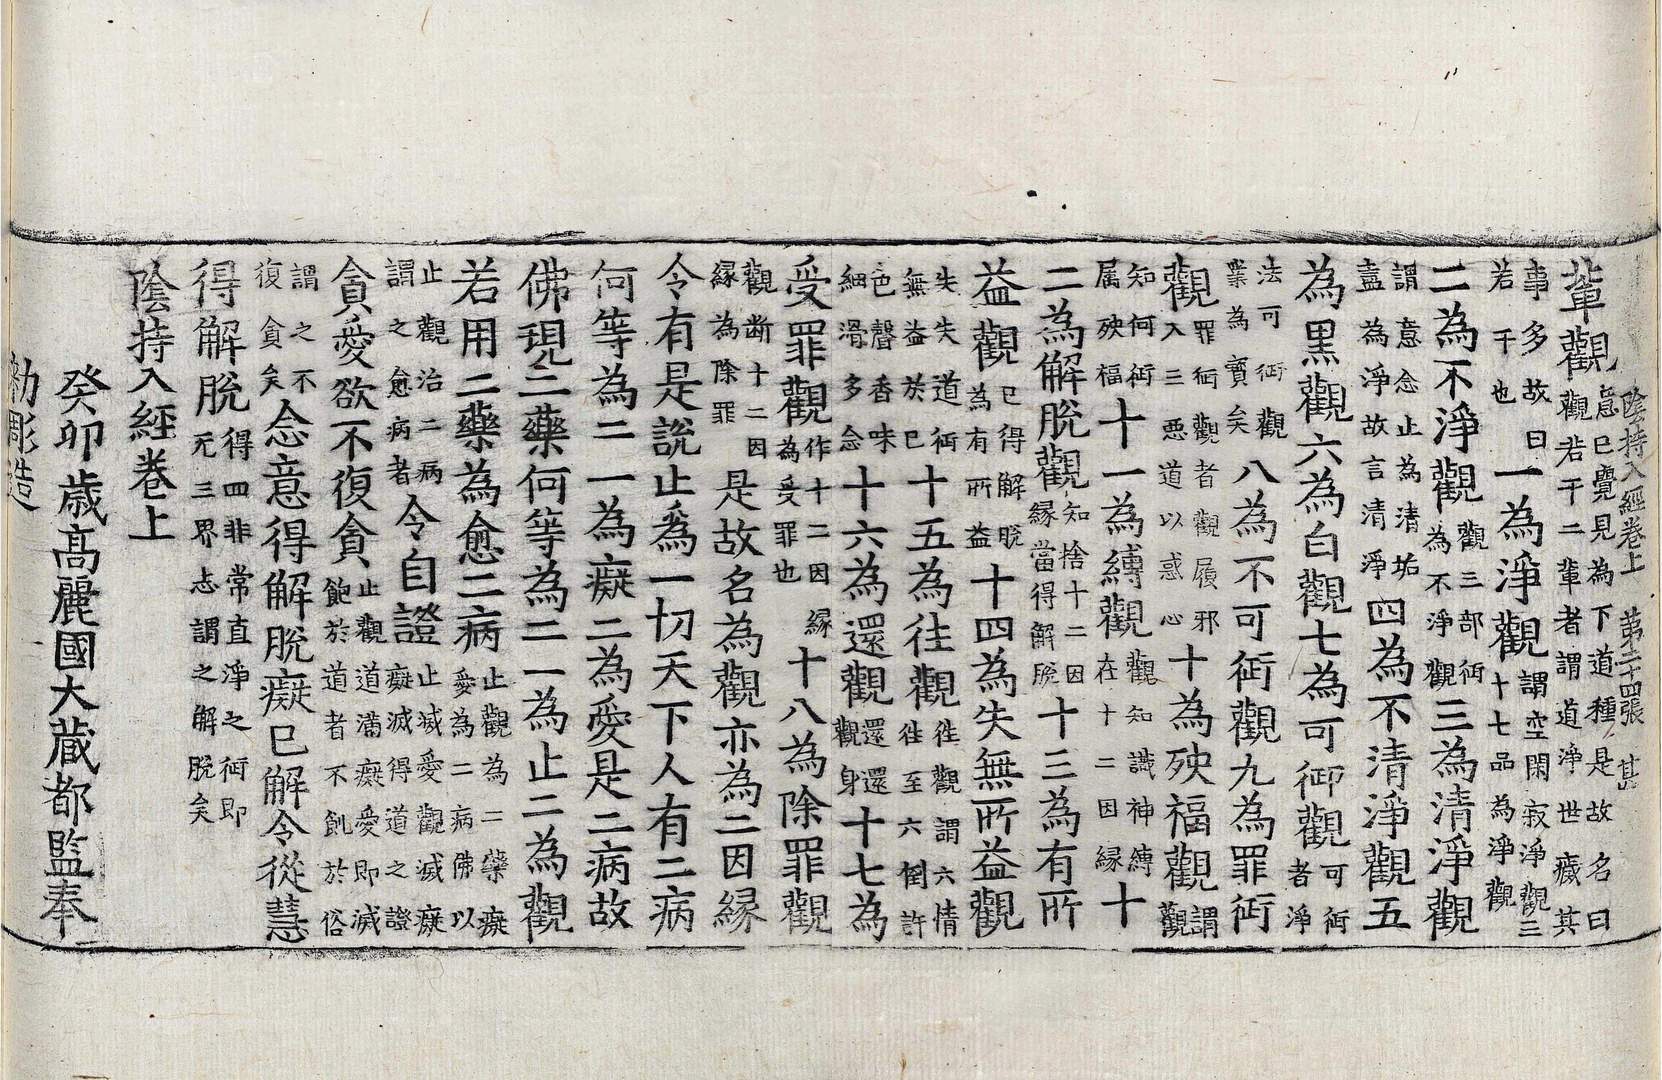 陰持入經卷上 第二十四張 甚
輩觀意已覺見為下道種是故名曰
觀若干二輩者謂道淨世癡其
事多故曰
若干也
一為淨觀謂空閑寂淨觀三
十七品為淨觀
二為不淨觀觀三部御
為不淨觀
三為清淨觀
謂意念止為清垢
盡為淨故言清淨
四為不清淨觀五
為黑觀六為白觀七為可御觀可御
者淨
法可御觀
業為實矣
八為不可御觀九為罪御
觀罪御觀者觀屐邪
入三惡道以惑心
十為殃福觀謂
觀
知何御
属殃福
十一為縛觀觀知識神縛
在十二因緣
十
二為解脫觀知捨十二因
緣當得解脫
十三為有所
益觀已得解脫
為有所益
十四為失無所益觀
失失道御
無益於已
十五為往觀徃觀謂六情
徃至六倒許
色聲香味
細滑多念
十六為還觀還還
觀身
十七為
受罪觀作十二因緣
為受罪也
十八為除罪觀
觀斷十二因
緣為除罪
是故名為觀亦為二因緣
令有是說止為一切天下人有二病
何等為二一為癡二為愛是二病故
佛現二藥何等為二一為止二為觀
若用二藥為愈二病止觀為二藥癡
愛為二病佛以
止觀治二病
謂之愈病者
令自證止滅愛觀滅癡
癡滅得道之證
貪愛欲不復貪止觀道滿癡愛即滅
飽於道者不飢於俗
謂之不
復貪矣
念意得解脫癡已解令從慧
得解脫得四非常直淨之御即
无三界志謂之解脫矣
陰持入經卷上
癸卯歲高麗國大藏都監奉
勅彫造